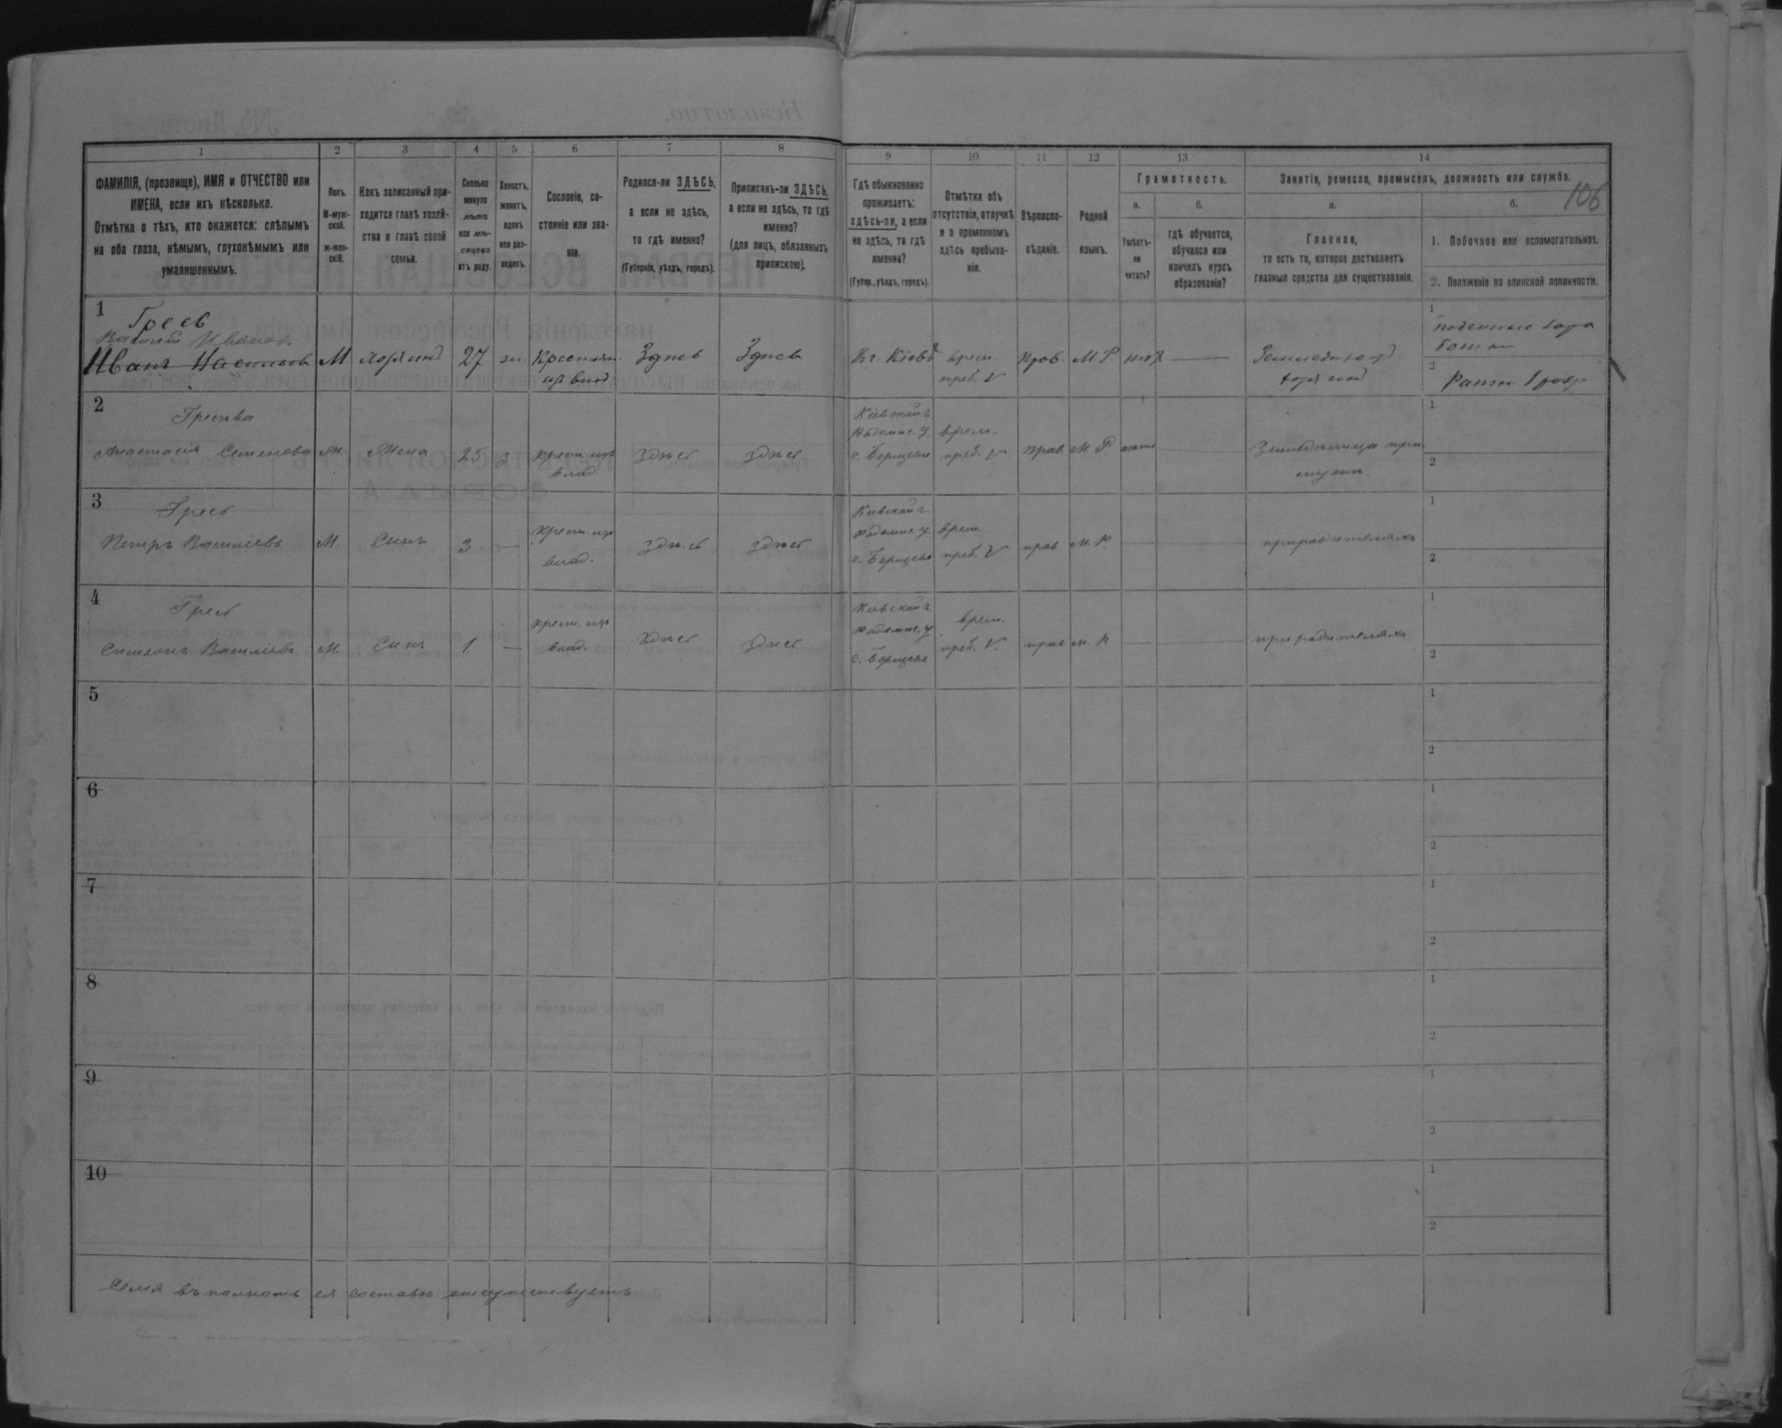 1 2 3 4 5 6 7 8 9 10 11 12 13 14
106
ФАМИЛІЯ, (прозвище), ИМЯ и ОТЧЕСТВО или
ИМЕНА, если ихъ нѣсколько.
Отмѣтка о тѣхъ, кто окажется: слѣпымъ
на оба глаза, нѣмымъ, глухонѣмымъ или
умалишеннымъ.
Полъ.
М-муж-
ской.
ж-жен-
скій.
Какъ записанный при-
ходится главѣ хозяй-
ства и главѣ своей
семьи.
Сколько
минуло
лѣтъ
или мѣ-
сяцевъ
отъ роду.
Холостъ,
женатъ,
вдовъ
или раз-
веденъ.
Сословіе, со-
стояніе или зва-
ніе.
Родился-ли ЗДѢСЬ,
а если не здѣсь,
то гдѣ именно?
(Губернія, уѣздъ, городъ).
Приписанъ-ли ЗДѢСЬ,
а если не здѣсь, то гдѣ
именно?
(для лицъ, обязанныхъ
припискою).
Гдѣ обыкновенно
проживаетъ:
здѣсь-ли, а если
не здѣсь, то гдѣ
именно?
(Губер., уѣздъ, городъ).
Отмѣтка объ
отсутствіи, отлучкѣ
и о временномъ
здѣсь пребыва-
ніи.
Вѣроиспо-
вѣданіе.
Родной
языкъ.
Грамотность.
а.
Умѣетъ-
ли
читать?
б.
гдѣ обучается,
обучался или
кончилъ курсъ
образованія?
Занятіе, ремесло, промыселъ, должность или служба.
а.
Главное,
то есть то, которое доставляетъ
главныя средства для существованія.
б.
1. Побочное или вспомогательное.
2. Положеніе по воинской повинности.
1
Гресь
Василій Иванов
Иванъ Васильев М хозяинъ 27 ж. Крестьян. Здѣсь Здѣсь Въ г. Кіевѣ врем. прав. М Р
из влад преб. V
1
2
2
Греськва
Анастасія Семенова Жена 25 з крест. изъ здѣсь здѣсь
влад
Кіевской г.
Радомыс. у. врем.
преб. V прав. М. Р.
1
2
3
Гресь
Петръ Василіевъ М. Сынъ 3 — крест. изъ здѣсь здѣсь
влад.
Кіевской г.
Радомыс. у. врем.
преб. V прав м. Р.
при родителяхъ
1
2
4
Гресь
Василіевъ М. Сынъ 1. — крест. изъ здѣсь здѣсь
влад.
Кіевской г.
Радомыс. у. врем.
преб. V. прав м. Р
при родителяхъ
1
2
5
1
2
6
1
2
7
1
2
8
1
2
9
1
2
10
1
2
Семя въ полномъ ея составѣ отсутствуетъ